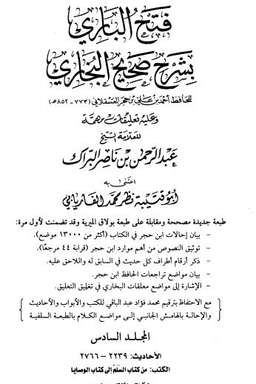 فتح الباري
بشرح صحيح البخاري
للحافظ أحمد بن علي بن حجر العسقلاني (٧٧٣-٨٥٢هـ)
وعليه تعليقات مهمة
للعلامة الشيخ
عبد الرحمن بن ناصر البراك
اعتنى به
أبو قتيبة نظر محمد الفاريابي
طبعة جديدة مصححة ومقابلة على طبعة بولاق الميرية وقد تضمنت لأول مرة:
- بيان إحالات ابن حجر في الكتاب (أكثر من ١٣٠٠٠ موضع).
- توثيق النصوص من أهم موارد ابن حجر (قرابة ٤٤ مرجعًا).
- ذكر أرقام أطراف كل حديث في السابق له واللاحق عليه.
- بيان مواضع تراجعات الحافظ ابن حجر.
- الإشارة إلى مواضع معلقات البخاري في تغليق التعليق.
مع الاحتفاظ بترقيم محمد فؤاد عبد الباقي للكتب والأبواب والأحاديث
والإحالة بالهامش الجانبي إلى مواضع الكلام بالطبعة السلفية
المجلد السادس
الأحاديث: ٢٢٣٩-٢٧٦٦
الكتب: من كتاب السلم إلى كتاب الوصايا